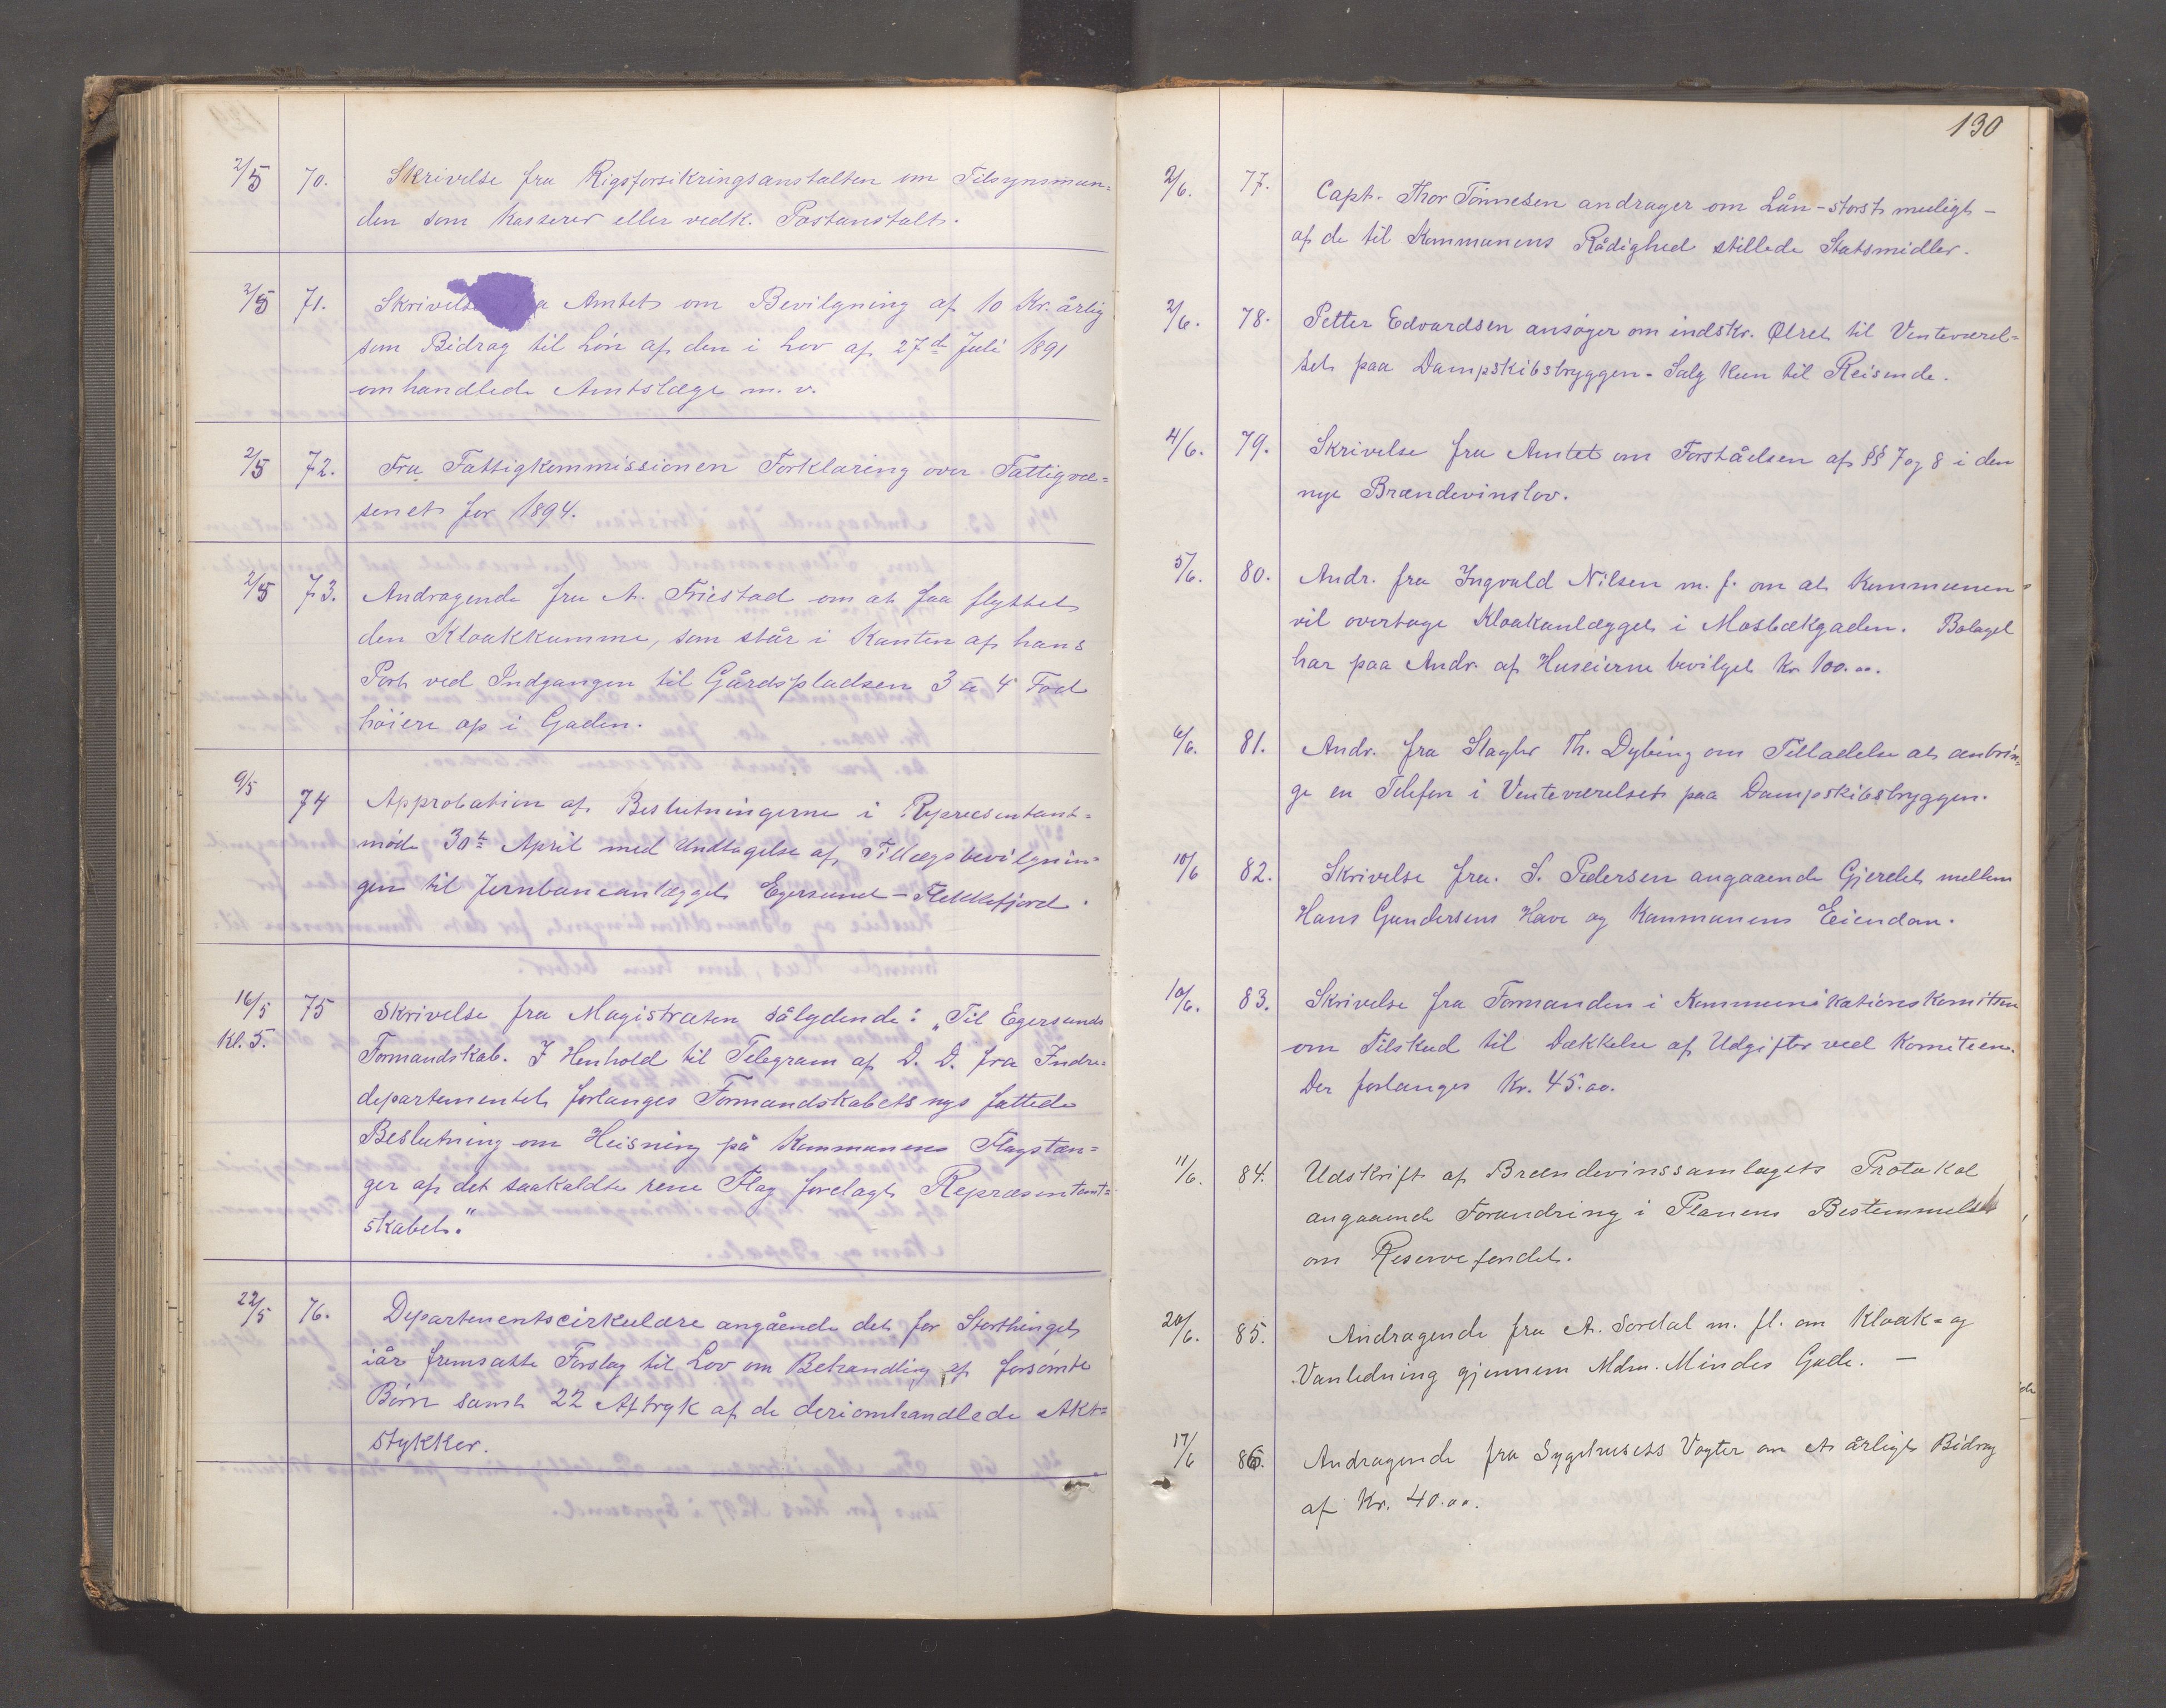 2/5 70. Skrivelse fra Rigsforsikringsanstalten om Tilsynsman=
den som Kasserer eller vedk. Postanstalt.
2/5 71. Skrivelse Amtet om Bevilgning af 10 Kr. årlig
som Bidrag til Løn af den i Lov af 27de Juli 1891
omhandlede Amtslæge m. v.
2/5 72. Fra Fattigkommissionen Forklaring over Fattigvæ=
senet for 1894.
2/5 73. Andragende fra A. Friestad om at faa flyttet
den Kloakkumme, som står i Kanten af hans
Port ved Indgangen til Gårdspladsen 3 a 4 Fod
høiere op i Gaden.
9/5 74 Approbation af Beslutningerne i Repræsentant=
møde 30te April med Undtagelse af Tillægsbevilgnin=
gen til Jernbaneanlægget Egersund – Flekkefjord.
16/5 75 Skrivelse fra Magistraten sålydende: „Til Egersunds
Kl. 5. Formandskab. I Henhold til Telegram af D. D. fra Indre=
departementet forlanges Formandskabets nys fattede
Beslutning om Heisning på Kommunens Flagstæn=
ger af det saakaldte rene Flag forelagt Repræsentant=
skabet."
22/5 76. Departementscirkulære angående det for Storthinget
iår fremsatte Forslag til Lov om Behandling af forsømte
Børn samt 22 Aftryk af de deriomhandlede Akt=
stykker.
130
2/6. 77. Capt. Thor Tønnesen andrager om Lån – størst muligt –
af de til Kommunens Rådighed stillede Statsmidler.
2/6. 78. Petter Edvardsen ansøger om indskr. Ølret til Venteværel=
set paa Dampskibsbryggen – Salg kun til Reisende.
4/6. 79. Skrivelse fra Amtet om Forståelsen af §§ 7 og 8 i den
nye Brændevinslov.
5/6. 80. Andr. fra Ingvald Nilsen m. f. om at Kommunen
vil overtage Kloakanlægget i Mosbækgaden. Bolaget
har paa Andr. af Huseierne bevilget Kr. 100.00.
6/6. 81. Andr. fra Slagter Th. Dybing om Tilladelse at anbrin=
ge en Telefon i Venteværelset paa Dampskibsbryggen.
10/6 82. Skrivelse fra S. Pedersen angaaende Gjerdet mellem
Hans Gundersens Have og Kommunens Eiendom.
10/6. 83. Skrivelse fra Formanden i Kommunikationskomiteen
om Tilskud til Dækkelse af Udgifter ved Komiteen.
Der forlanges Kr. 45.00.
11/6. 84. Udskrift af Brændevinssamlagets Protokol
angaaende Forandring i Planens Bestemmelse
om Reservefondet.
20/6. 85. Andragende fra A. Sordal m. fl. om Kloak= og
Vanledning gjennem Mdm. Mindes Gade. –
17/6 86. Andragende fra Sygehusets Vogter om et årligt Bidrag
af Kr. 40.00.